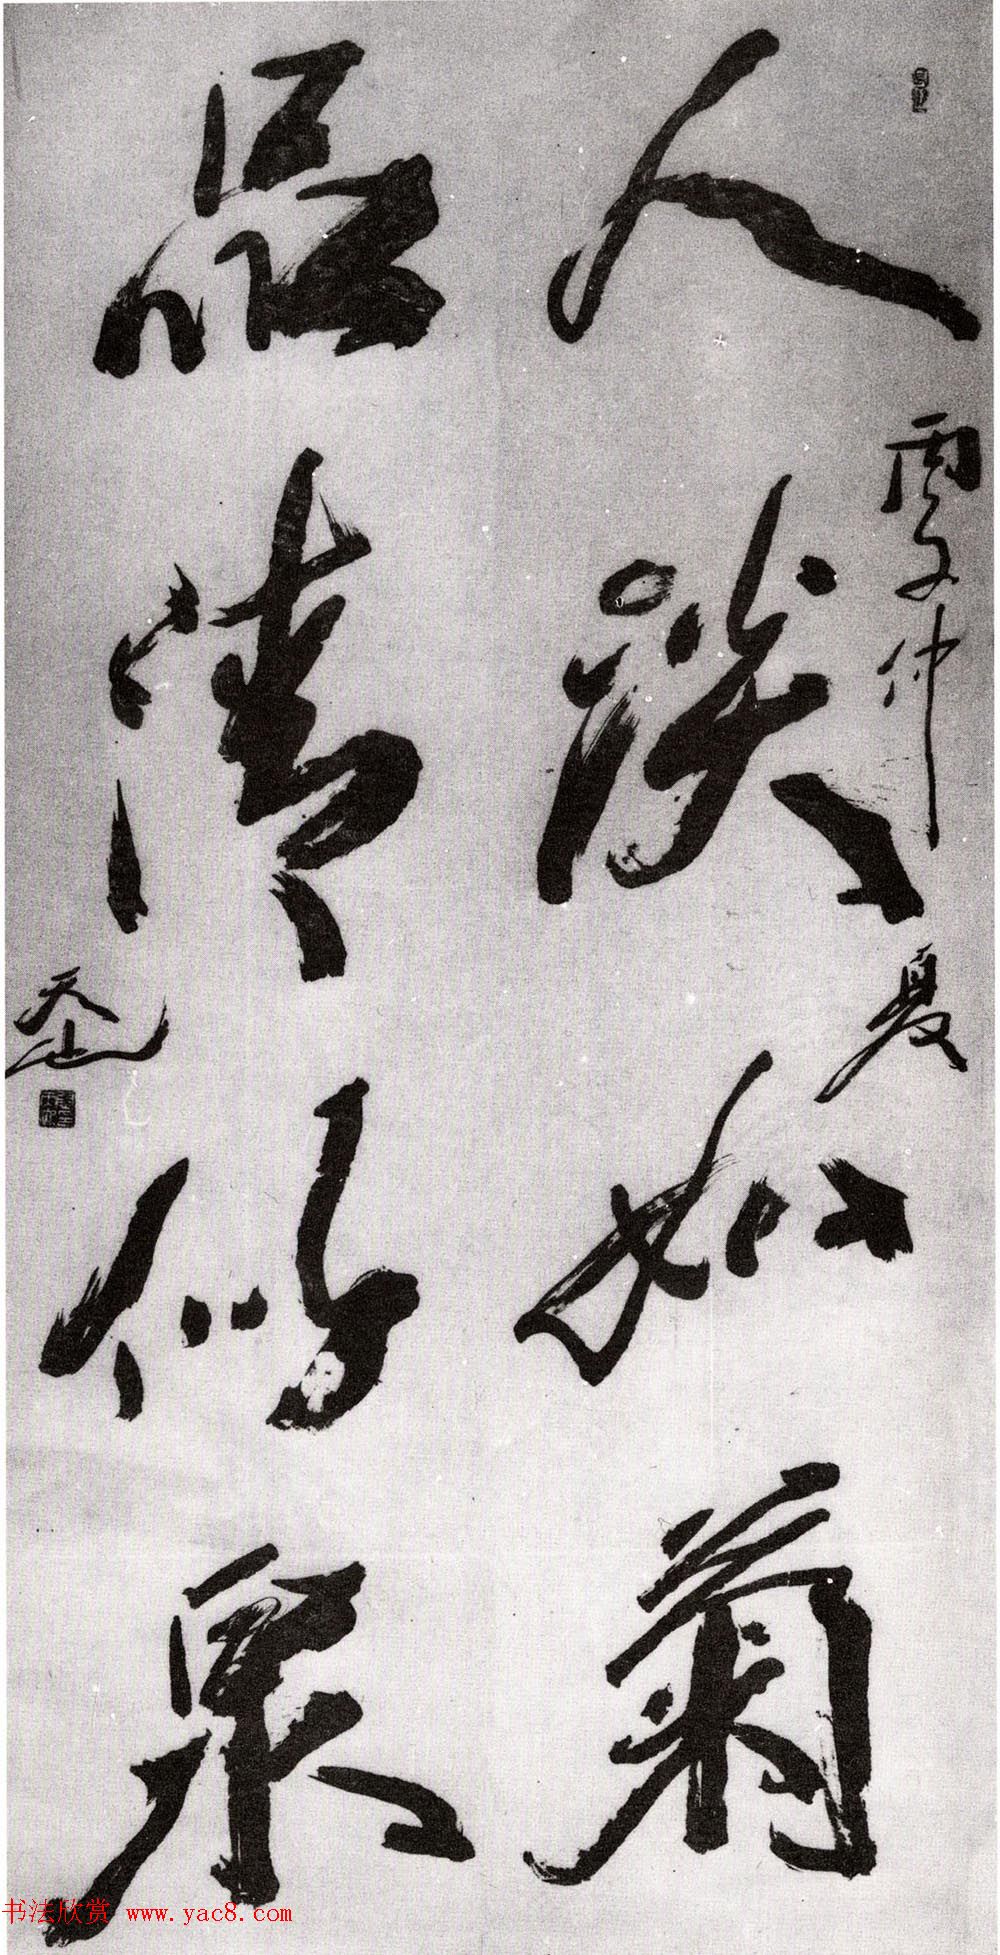 人淡如菊
丙子仲夏
品清似泉
书法欣赏 www.yac8.com